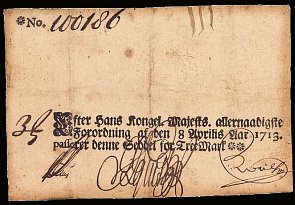 No. 100186
Efter Hans Kongel. Majests. allernaadigste
Forordning af den 8 Aprilis Aar 1713.
passerer denne Seddel for Tree Mark